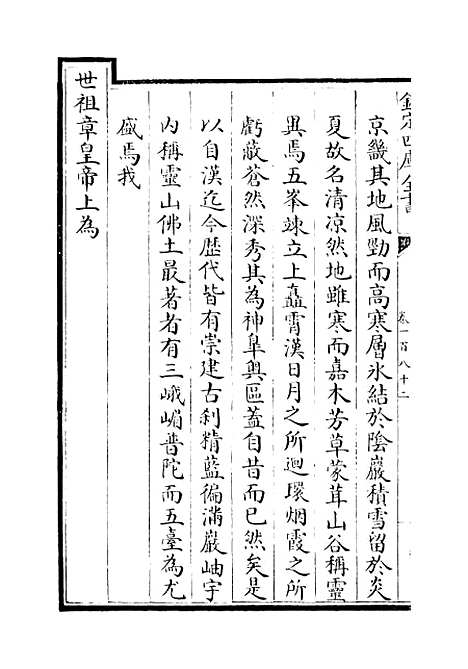 欽定四庫全書
卷一百八十二
京畿其地風勁而高寒層氷結於陰巖積雪留於炎
夏故名清凉然地雖寒而嘉木芳草蒙茸山谷稱靈
異焉五峯竦立上矗霄漢日月之所迴環烟霞之所
虧蔽蒼然深秀其為神臯奥區蓋自昔而已然矣是
以自漢迄今歴代皆有崇建古刹精藍徧滿巖岫宇
内稱靈山佛土最著者有三峨嵋普陀而五臺為尤
盛焉我
世祖章皇帝上為